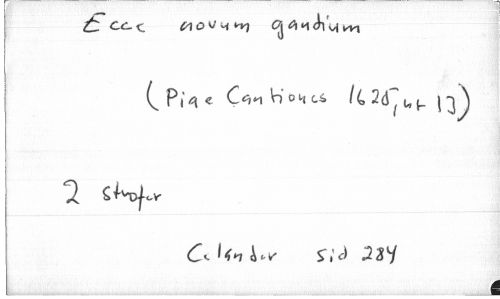 Ecce novum gaudium
(Piae Cantiones 1625, nr 13)
2 strofer
Celander sid 284